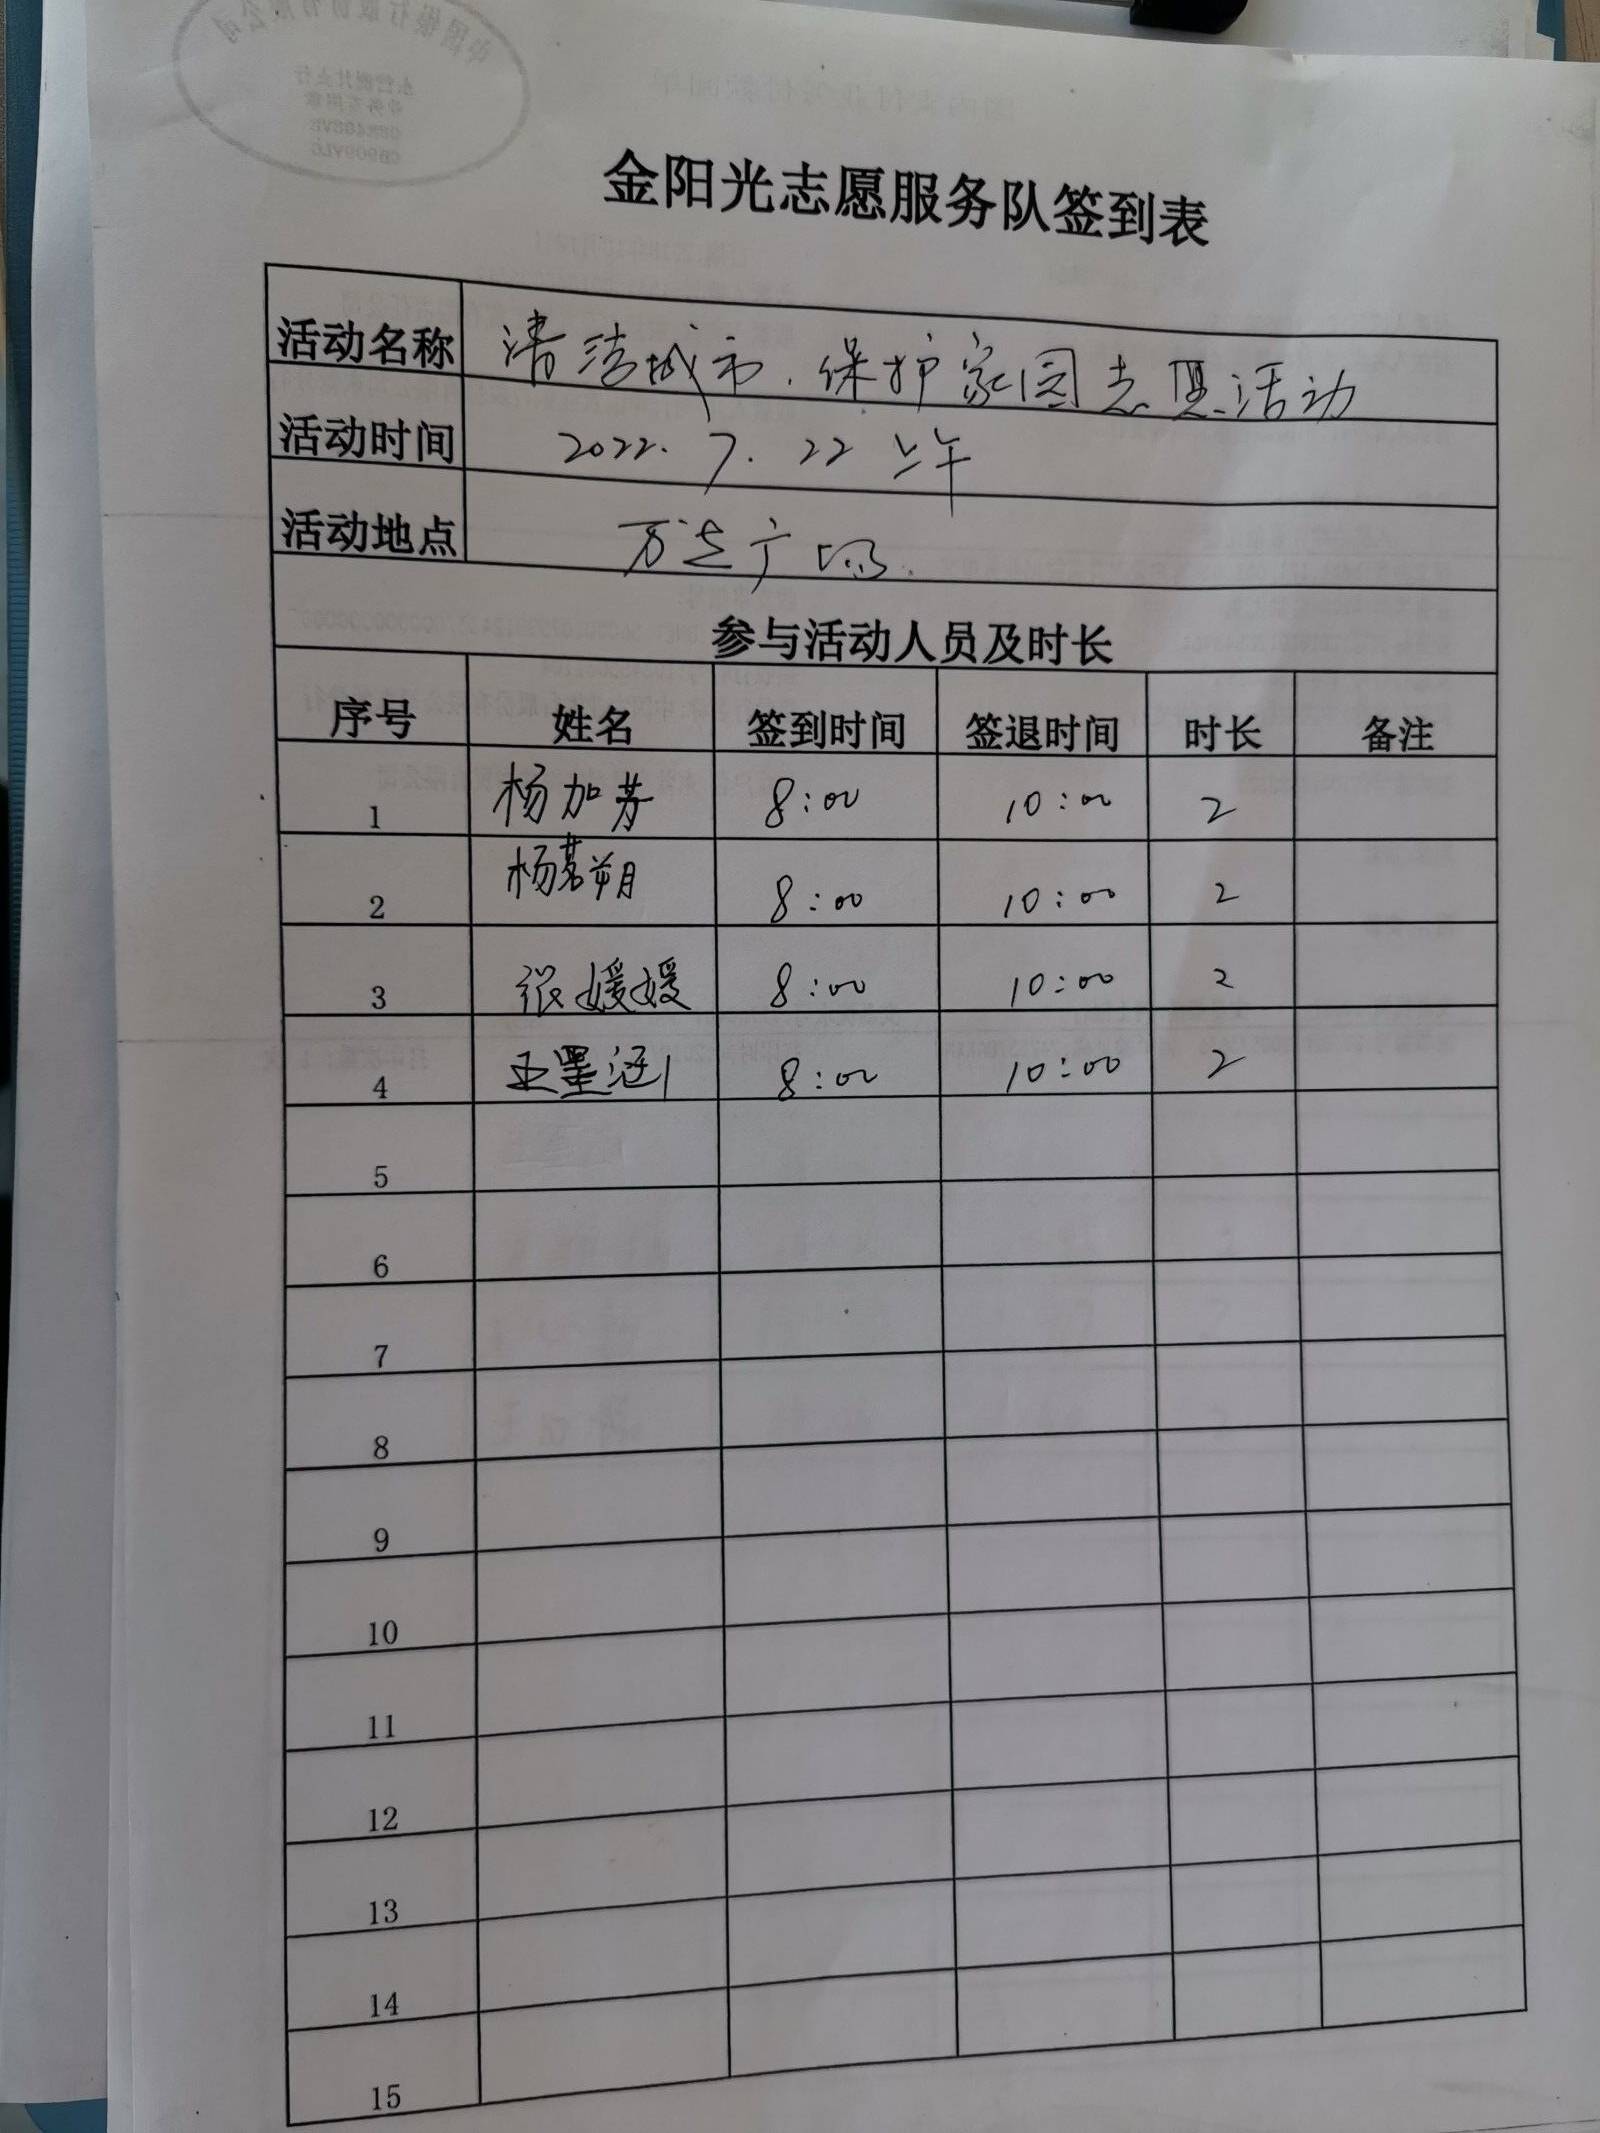 金阳光志愿服务队签到表
活动名称 清洁城市、保护家园志愿活动
活动时间 2022.7.22 上午
活动地点 万达广场.
参与活动人员及时长
序号 姓名 签到时间 签退时间 时长 备注
1 杨加芳 8:00 10:00 2
2 杨茗朔 8:00 10:00 2
3 张媛媛 8:00 10:00 2
4 王墨涵 8:00 10:00 2
5
6
7
8
9
10
11
12
13
14
15